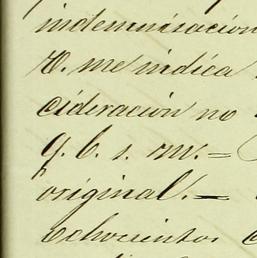 indemnisación
V. me indica
cideración no
q. b. s. m. =
original. —
Echocientos